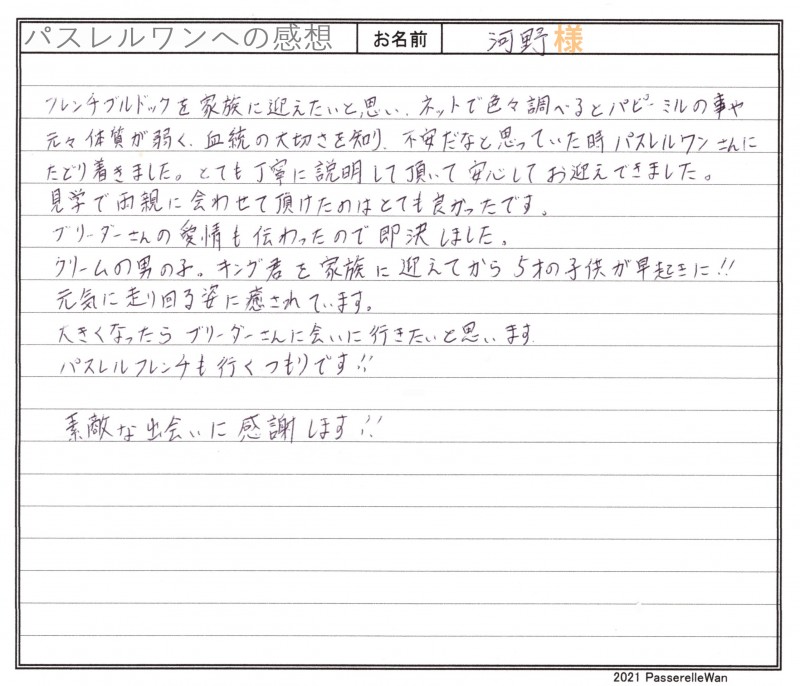 パスレルワンへの感想 お名前 河野様
フレンチブルドックを家族に迎えたいと思い、ネットで色々調べるとパピーミルの事や
元々体質が弱く、血統の大切さを知り、不安だなと思っていた時パスレルワンさんに
たどり着きました。とても丁寧に説明して頂いて安心してお迎えできました。
見学で両親に会わせて頂けたのはとても良かったです。
ブリーダーさんの愛情も伝わったので即決しました。
クリームの男の子。キング君を家族に迎えてから5才の子供が早起きに!!
元気に走り回る姿に癒されています。
大きくなったらブリーダーさんに会いに行きたいと思います
パスレルフレンチも行くつもりです!!
素敵な出会いに感謝します!!
2021 PasserelleWan